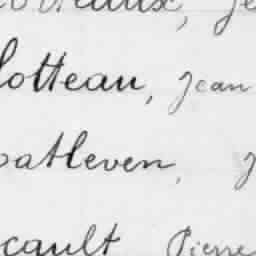 lotteau, Jean
oatleven,
cault Pierre